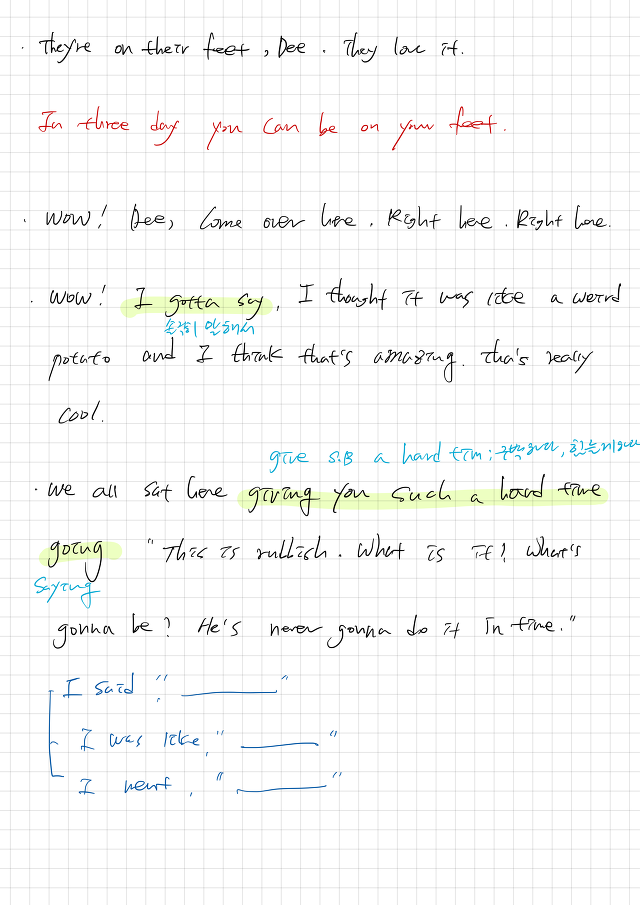 · They're on their feet, Dee. They love it.
In three day you can be on your feet.
· WOW! Dee, Come over here. Right here. Right here.
· WOW! I gotta say, I thought it was like a weird
솔직히 말해서
potato and I think that's amazing. Tha's really
cool.
give S.B a hard tim : 구박하다, 힌들게하다
· We all sat here giving you such a hard time
going "This is rubbish. What is it? What's
Saying
gonna be? He's never gonna do it in time."
I said, "________"
I was like, "________"
I went, "________"